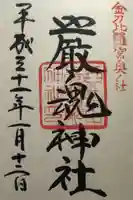 金刀比羅宮奥社
厳魂神社
平成三十一年一月十二日